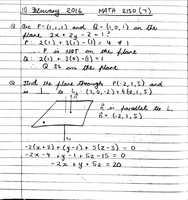 10 February 2016 MATH 2150 (7)
Q. Are P=(1,1,1) and Q=(1,0,1) on the
plane 2x + 3y - z = 1?
P: 2(1) + 3(1) - (1) = 4 ≠ 1
∴ P is NOT on the plane
Q: 2(1) + 3(0) - (1) = 1
∴ Q IS on the plane
Q. Find the plane through P(-2,1,3) and
is ⊥ to L
n is parallel to L,
n = (-2,1,5)
-2(x+2) + (y-1) + 5(z-3) = 0
-2x - 4 + y - 1 + 5z - 15 = 0
-2x + y + 5z = 20